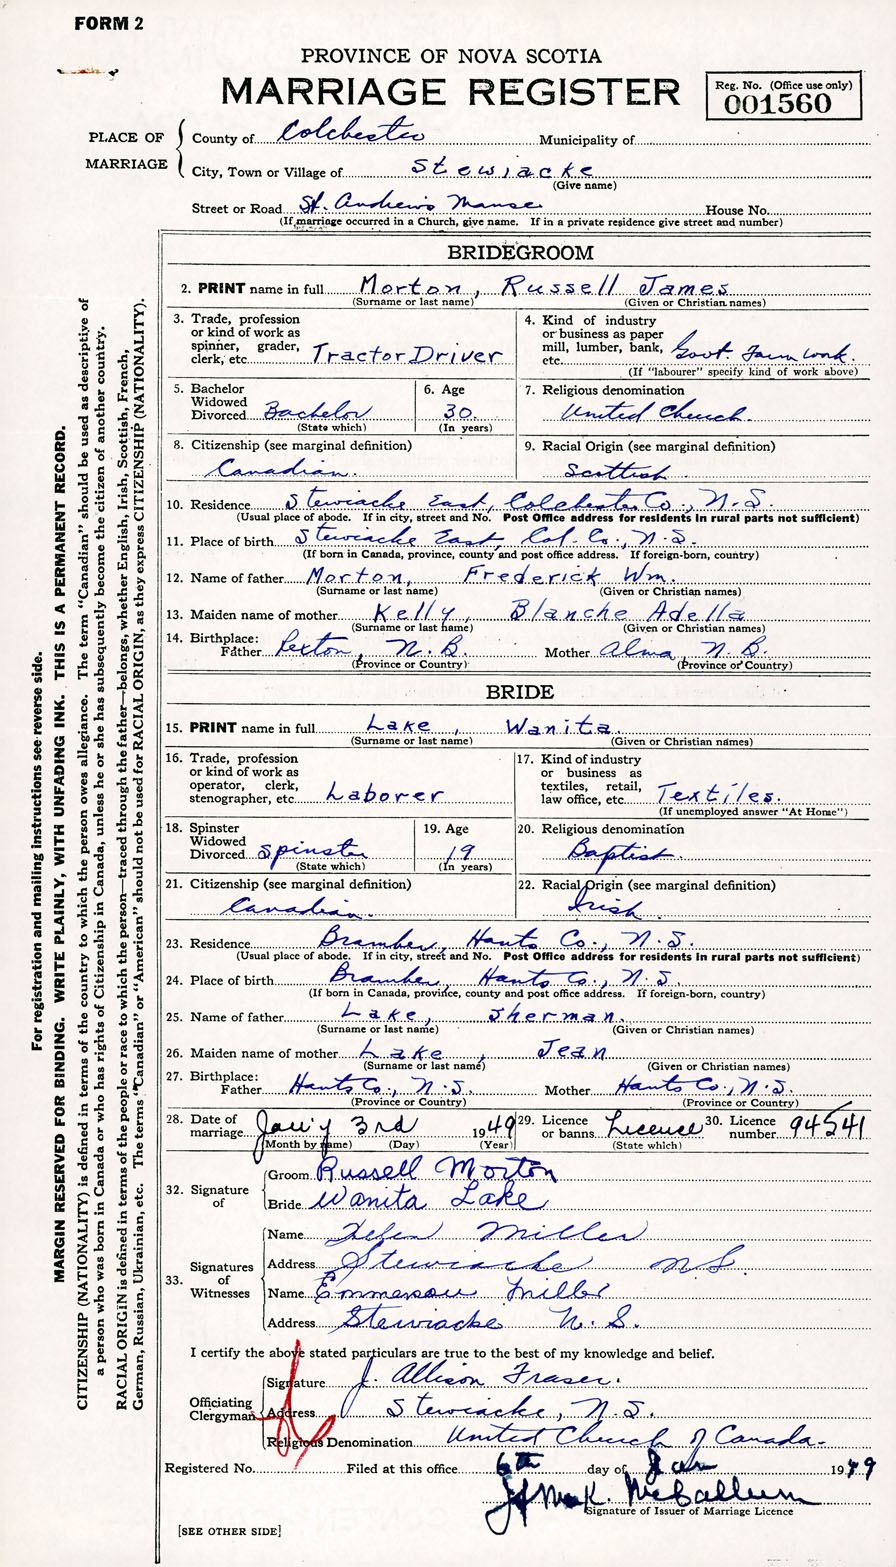 FORM 2
PROVINCE OF NOVA SCOTIA
MARRIAGE REGISTER
Reg. No. (Office use only)
001560
PLACE OF MARRIAGE
County of Colchester Municipality of
City, Town or Village of Stewiacke
(Give name)
Street or Road St. Andrew's Manse House No.
(If marriage occurred in a Church, give name. If in a private residence give street and number)
BRIDEGROOM
2. PRINT name in full Morton, Russell James
(Surname or last name) (Given or Christian names)
3. Trade, profession or kind of work as spinner, grader, clerk, etc. Tractor Driver
4. Kind of industry or business as paper mill, lumber, bank, etc. Govt. Farm Work.
(If "labourer" specify kind of work above)
5. Bachelor Widowed Divorced Bachelor
(State which)
6. Age 30
(In years)
7. Religious denomination United Church.
8. Citizenship (see marginal definition)
Canadian.
9. Racial Origin (see marginal definition)
Scottish.
10. Residence Stewiacke East, Colchester Co., N.S.
(Usual place of abode. If in city, street and No. Post Office address for residents in rural parts not sufficient)
11. Place of birth Stewiacke East, Col. Co., N.S.
(If born in Canada, province, county and post office address. If foreign-born, country)
12. Name of father Morton, Frederick Wm.
(Surname or last name) (Given or Christian names)
13. Maiden name of mother Kelly, Blanche Adella
(Surname or last name) (Given or Christian names)
14. Birthplace:
Father Rexton, N.B. Mother Alma, N.B.
(Province or Country) (Province or Country)
BRIDE
15. PRINT name in full Lake, Wanita
(Surname or last name) (Given or Christian names)
16. Trade, profession or kind of work as operator, clerk, stenographer, etc. Laborer
17. Kind of industry or business as textiles, retail, law office, etc. Textiles.
(If unemployed answer "At Home")
18. Spinster Widowed Divorced Spinster
(State which)
19. Age 19
(In years)
20. Religious denomination
Baptist.
21. Citizenship (see marginal definition)
Canadian.
22. Racial Origin (see marginal definition)
Irish.
23. Residence Bramber, Hants Co., N.S.
(Usual place of abode. If in city, street and No. Post Office address for residents in rural parts not sufficient)
24. Place of birth Bramber, Hants Co., N.S.
(If born in Canada, province, county and post office address. If foreign-born, country)
25. Name of father Lake, Sherman.
(Surname or last name) (Given or Christian names)
26. Maiden name of mother Lake, Jean
(Surname or last name) (Given or Christian names)
27. Birthplace:
Father Hants Co., N.S. Mother Hants Co., N.S.
(Province or Country) (Province or Country)
28. Date of marriage Jan'y 3rd 1949
(Month by name) (Day) (Year)
29. Licence or banns Licence
(State which)
30. Licence number 94541
32. Signature of
Groom Russell Morton
Bride Wanita Lake
33. Signatures of Witnesses
Name Helen Miller
Address Stewiacke N.S.
Name Emmerson Miller
Address Stewiacke N.S.
I certify the above stated particulars are true to the best of my knowledge and belief.
Officiating Clergyman
Signature J. Allison Fraser.
Address Stewiacke, N.S.
Religious Denomination United Church of Canada.
Registered No. Filed at this office 6th day of Jan 1949
McK. McCallum
Signature of Issuer of Marriage Licence
[SEE OTHER SIDE]
For registration and mailing instructions see reverse side.
MARGIN RESERVED FOR BINDING. WRITE PLAINLY, WITH UNFADING INK. THIS IS A PERMANENT RECORD.
CITIZENSHIP (NATIONALITY) is defined in terms of the country to which the person owes allegiance. The term "Canadian" should be used as descriptive of
a person who was born in Canada or who has rights of Citizenship in Canada, unless he or she has subsequently become the citizen of another country.
RACIAL ORIGIN is defined in terms of the people or race to which the person—traced through the father—belongs, whether English, Irish, Scottish, French,
German, Russian, Ukrainian, etc. The terms "Canadian" or "American" should not be used for RACIAL ORIGIN, as they express CITIZENSHIP (NATIONALITY).